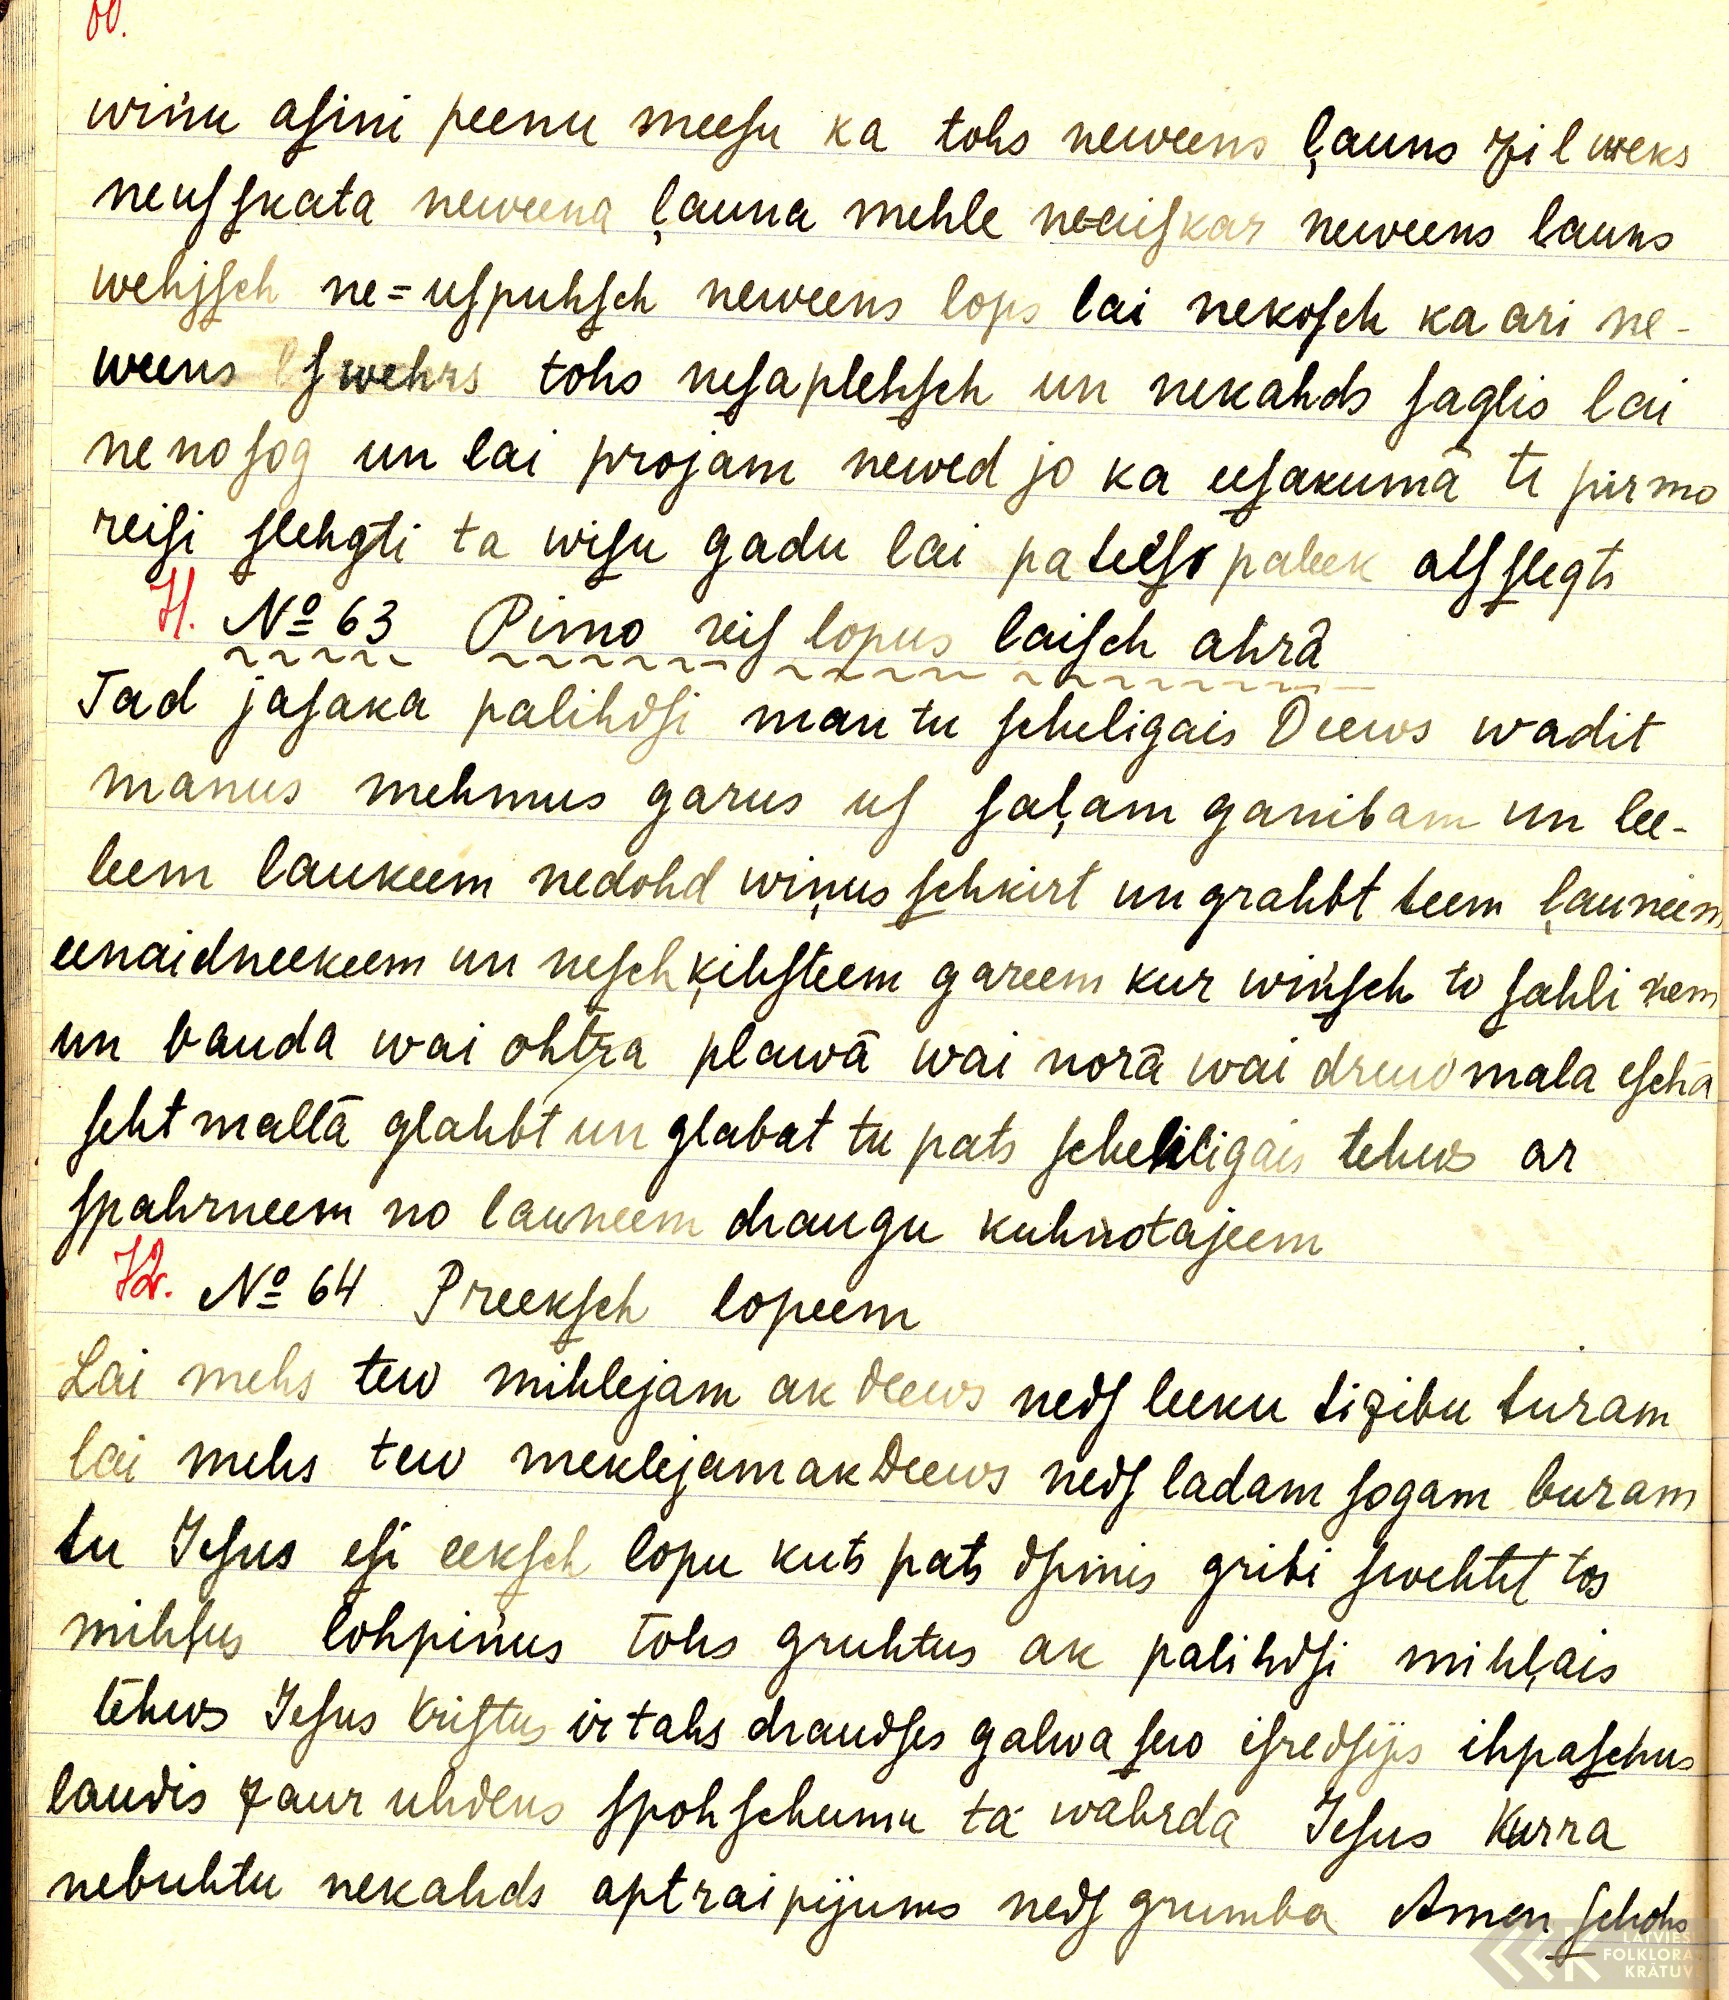 60.
wiņu asini peenu meesu ka tohs neweens ļauns zilweks
neusskata neweena ļauna mehle ne-aiskar neweens launs
wehjsch ne=uspuhsch neweens lops lai nekosch ka ari ne-
weens swehrs tohs nesaplehsch un nekahds saglis lai
ne nosog un lai projam newed jo ka eesakumâ te pirmo
reisi slehgti ta wisu gadu lai pateesi paleek alsslegts
71. No 63 Pimo reis lopus laisch ahrâ
Tad jasaka palihdsi man tu scheligais Deews wadit
manus mehmus garus us saļam ganibam un lee-
leem laukeem nedohd wiņus schkirt un grahbt teem ļauneem
eenaidneekeem un neschķihsteem gareem kur wiņsch to sahli ņem
un bauda wai ohtra plawâ wai norâ wai druwmala eschâ
seht mallâ glahbt un glabat tu pats scheliligais tehws ar
spahrneem no launeem draugu kuhnotajeem
72. No 64 Preeksch lopeem
Lai mehs tew mihlejam ak deews neds leeku tizibu turam
lai mehs tew meklejam ak Deews neds ladam sogam buram
tu Jesus esi eeksch lopu kuts pats dsimis gribi swehtit tos
mihļus lohpiņus tohs gruhtus ak palihdsi mihļais
tehws Jesus Kristus ir tahs draudses galwa sew isredsejis ihpaschus
laudis zaur uhdens spohschumu ta wahrda Jesus Kurra
nebuhtu nekahds aptraipijums neds grumba Amen schohs
LATVIEŠ
FOLKLORA
KRĀTUV